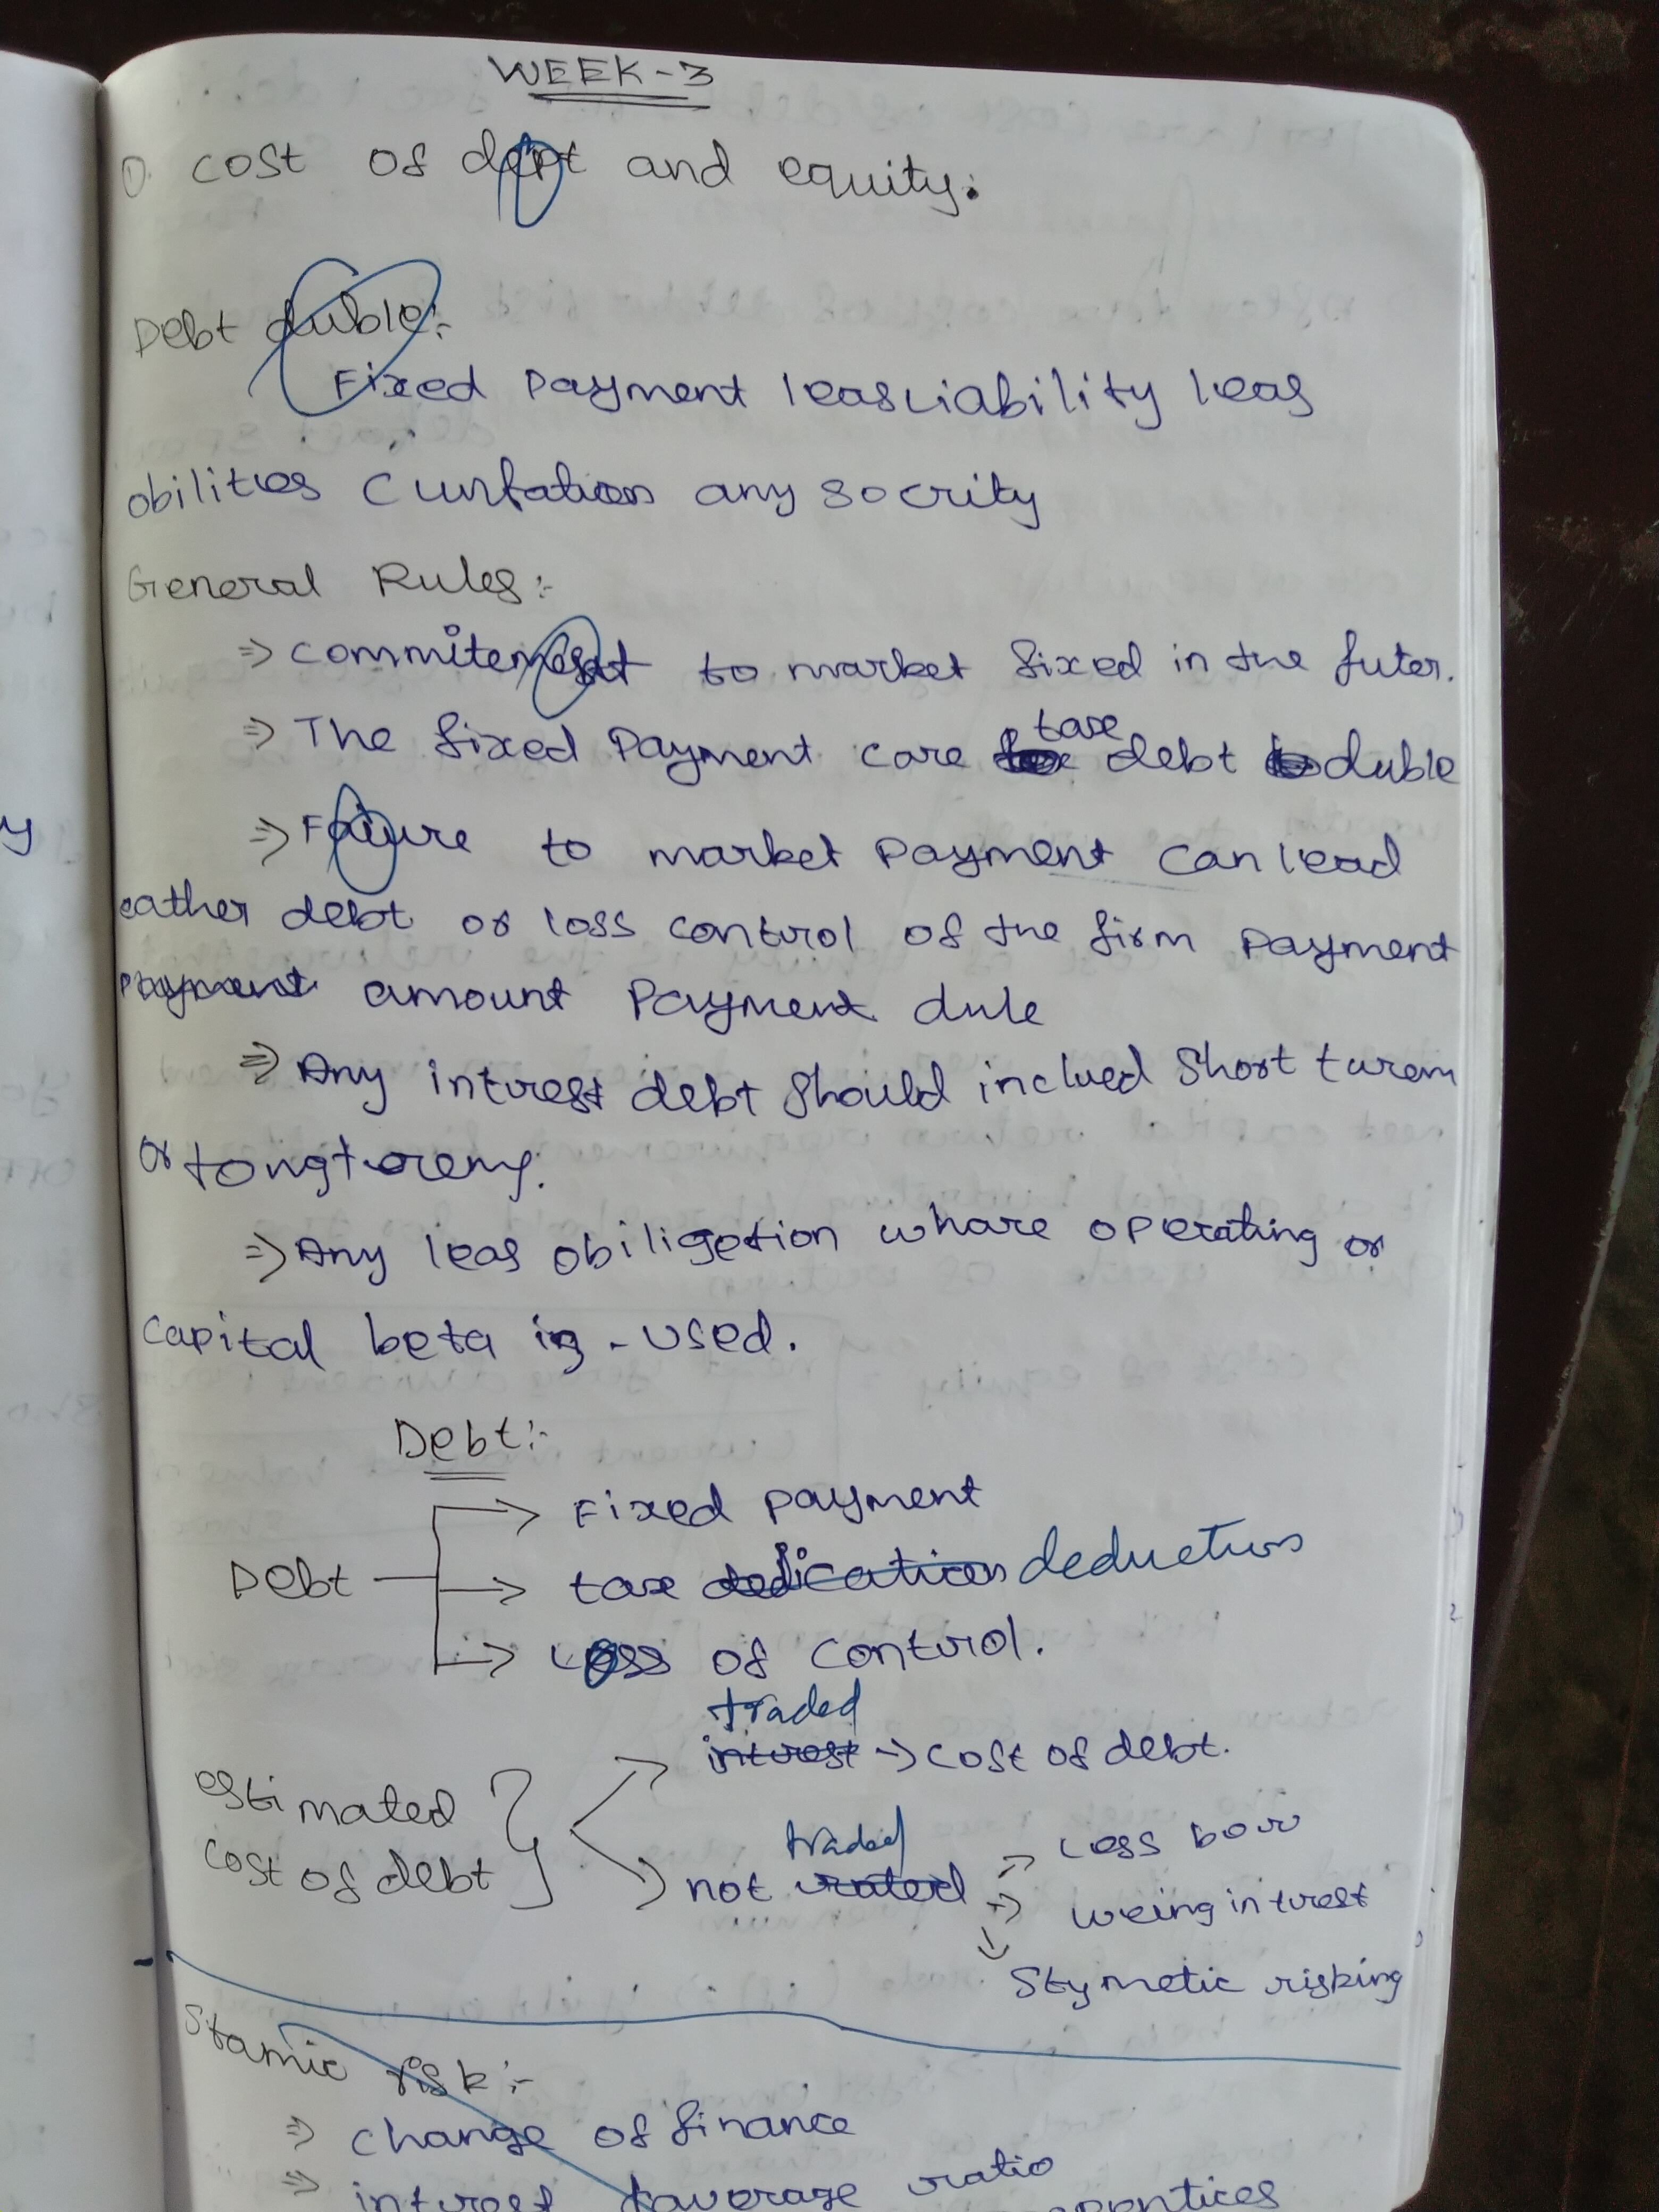 WEEK-3
1). cost of dept and equity:
Debt duble:-
Fixed Payment leasliability leas
obilities any socrity
General Rules:-
⇒ commitement to market fixed in the futer.
⇒ The fixed Payment care taxe debt duble
⇒ Faiure to market Payment can lead
eather debt or loss control of the firm Payment
payment amount Payment dule
⇒ Any intrest debt should inclued Short turem
or longt oremy.
⇒ Any leas obiligetion whare operating or
capital beta is - used.
Debt:-
→ Fixed payment
Debt → taxe dedication deduction
→ Loss of control.
traded
intrest → cost of debt.
estimated
cost of debt
traded
not rated
→ Less borr
→ weing intrest
→ Stymetic risking
Stamic risk:-
⇒ change of finance
⇒ intrest coverage ratio